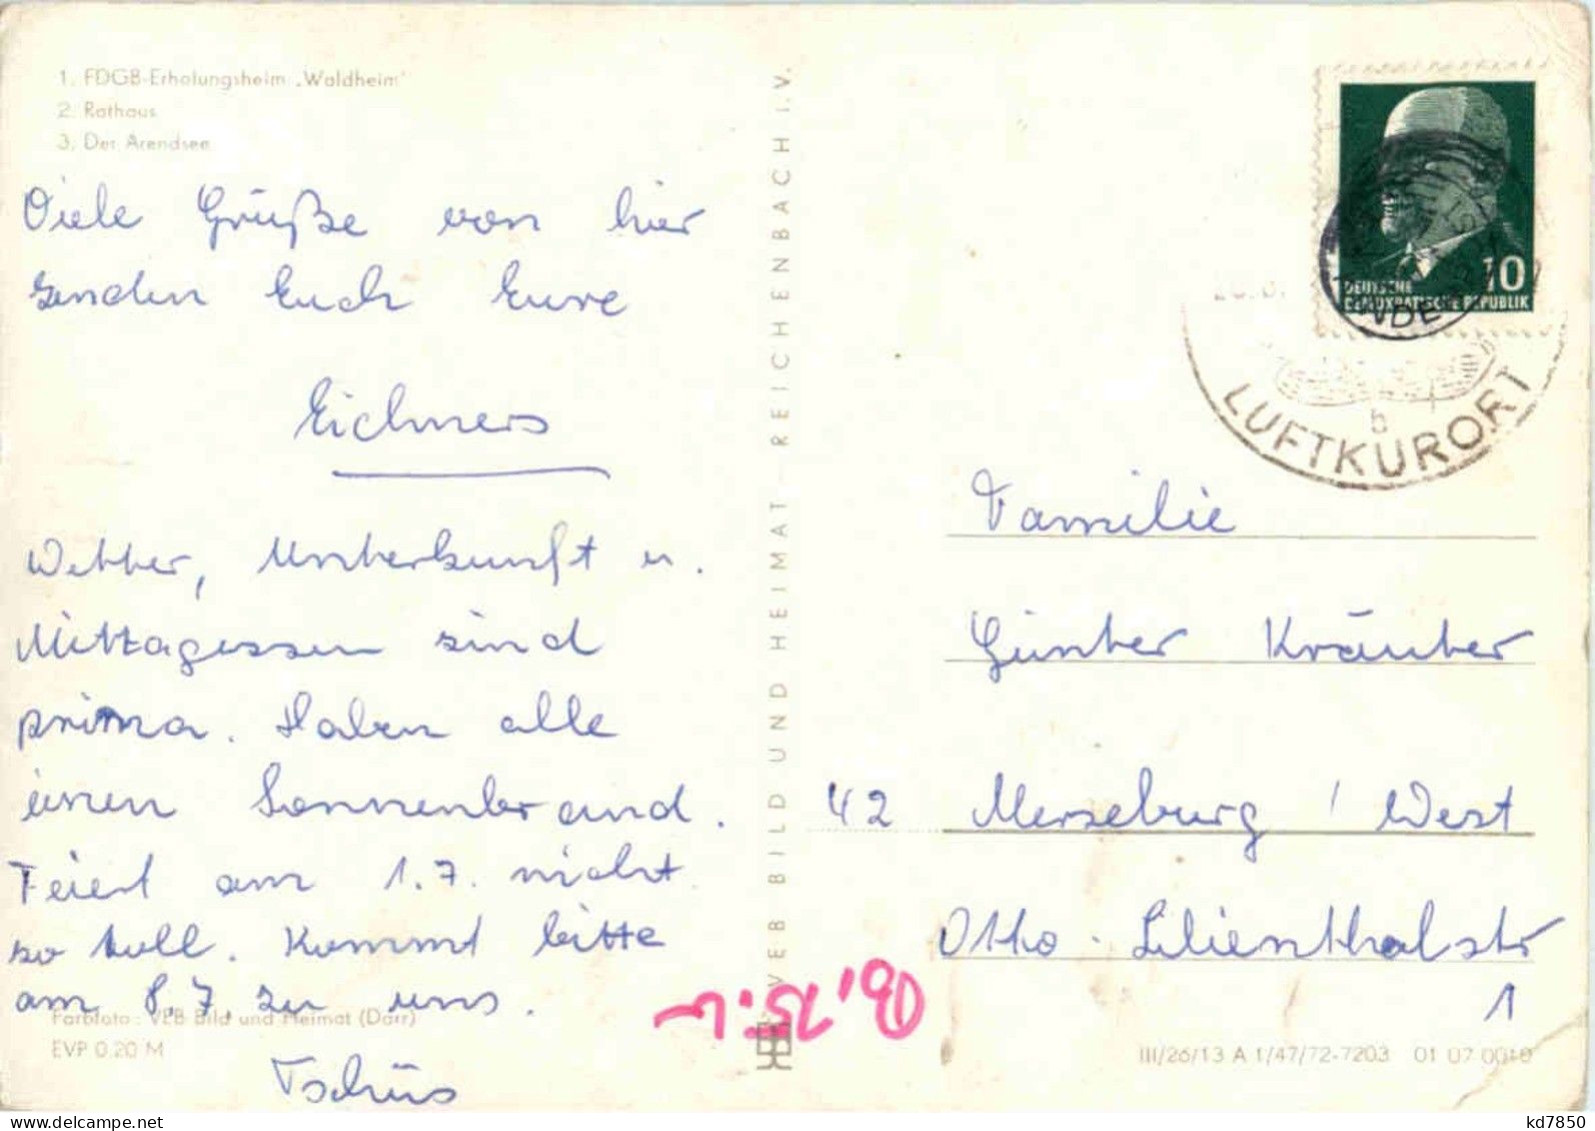 1. FDGB-Erholungsheim „Waldheim"
2. Rathaus
3. Der Arendsee
Viele Grüße von hier
senden Euch Eure
Eichners
Wetter, Unterkunft u.
Mittagessen sind
prima. Haben alle
einen Sonnenbrand.
Feiert am 1.7. nicht
so toll. Kommt bitte
am 8.7. zu uns.
Tschüs
Farbfoto: VEB Bild und Heimat (Darr)
EVP 0.20 M
VEB BILD UND HEIMAT REICHENBACH I. V.
10
DEUTSCHE
DEMOKRATISCHE REPUBLIK
b
LUFTKURORT
Familie
Günter Kräuter
42 Merseburg / West
Otto-Lilienthalstr
1
III/26/13 A 1/47/72-7203 01 07 0010
kd7850